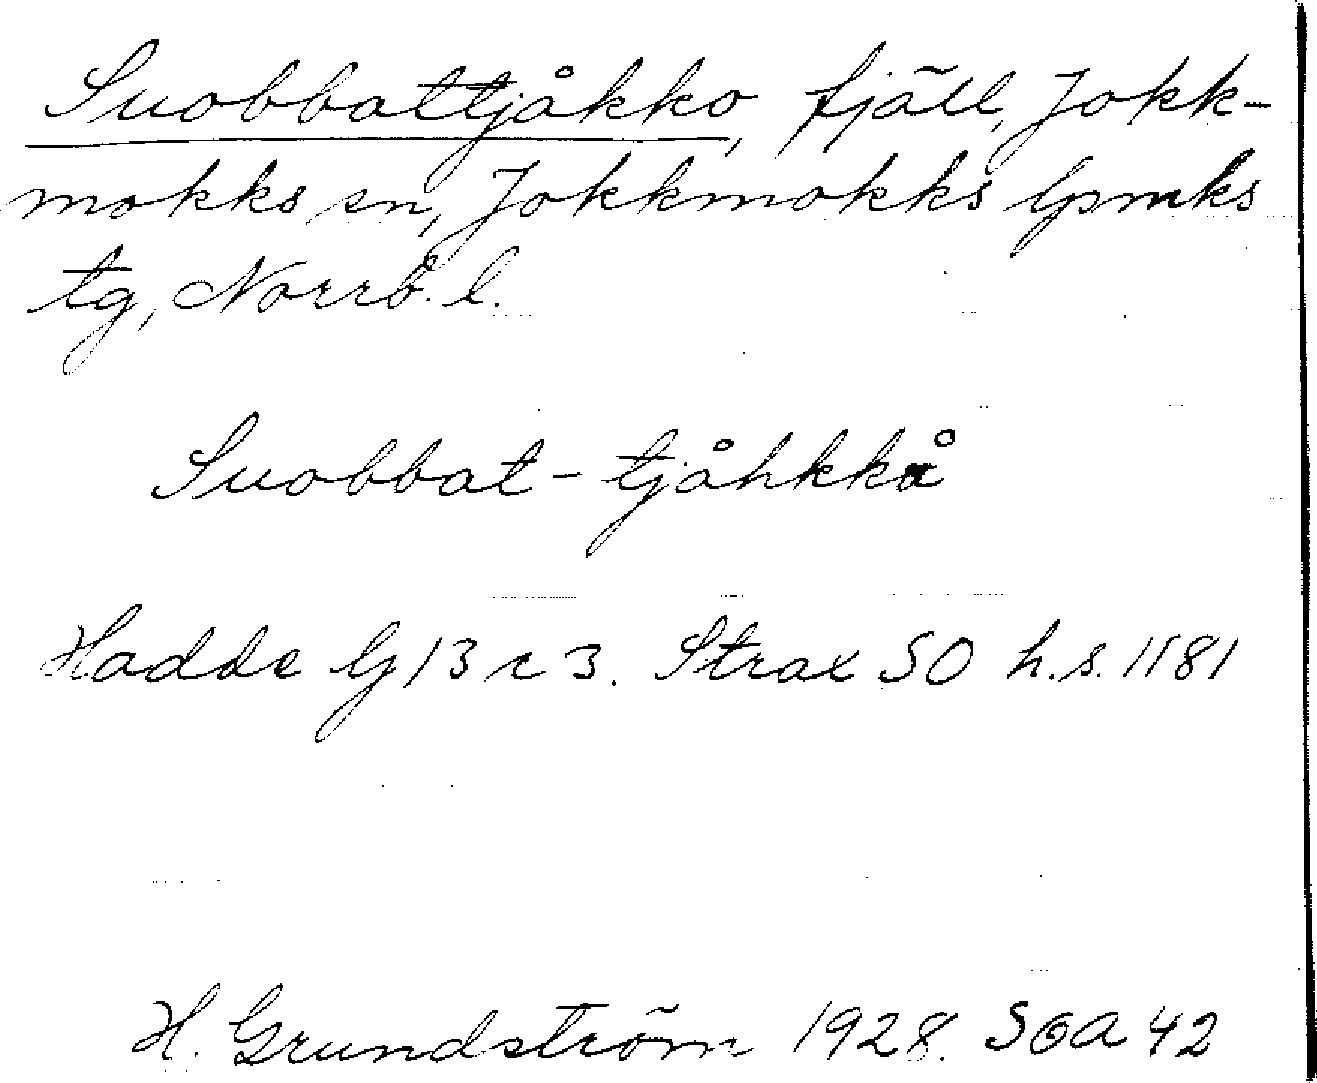 Suobbattjåkko, fjäll, Jokk-
mokks sn, Jokkmokks lpmks
tg, Norrb. l.
Suobbat-tjåhkkå
Hadde G 13 r 3. Strax SO h.s. 1181
H. Grundström 1928. SOA 42